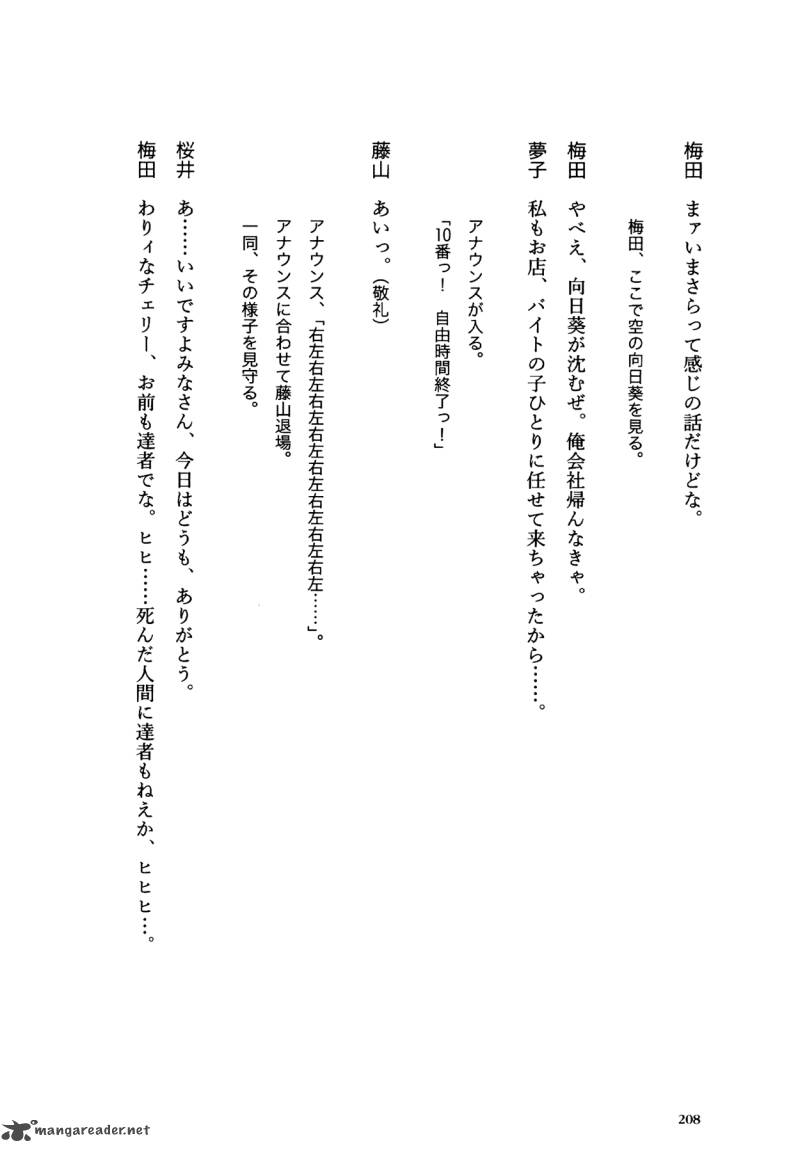 梅田　まァいまさらって感じの話だけどな。
梅田、ここで空の向日葵を見る。
梅田　やべえ、向日葵が沈むぜ。俺会社帰んなきゃ。
夢子　私もお店、バイトの子ひとりに任せて来ちゃったから……。
アナウンスが入る。
「10番っ！　自由時間終了っ！」
藤山　あいっ。（敬礼）
アナウンス、「右左右左右左右左右左右左右左右左……」。
アナウンスに合わせて藤山退場。
一同、その様子を見守る。
桜井　あ……いいですよみなさん、今日はどうも、ありがとう。
梅田　わりィなチェリー、お前も達者でな。ヒヒ……死んだ人間に達者もねえか、ヒヒヒ…。
208
mangareader.net